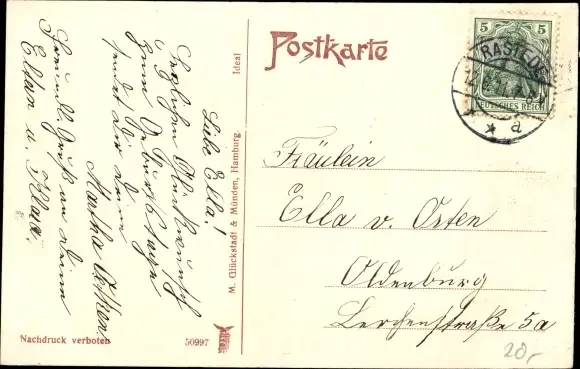 Postkarte
Ideal
5 5
RASTEDE
DEUTSCHES REICH
* a
Liebe Ella!
Herzlichen Glückwunsch
zum Geburtstage
sendet dir deine
Martha
Freundl. Gruß an deine
Eltern u. Klara.
M. Glückstadt & Münden, Hamburg.
Fräulein
Ella v. Osten
Oldenburg
Lerchenstraße 5a
Nachdruck verboten
50997
20,-